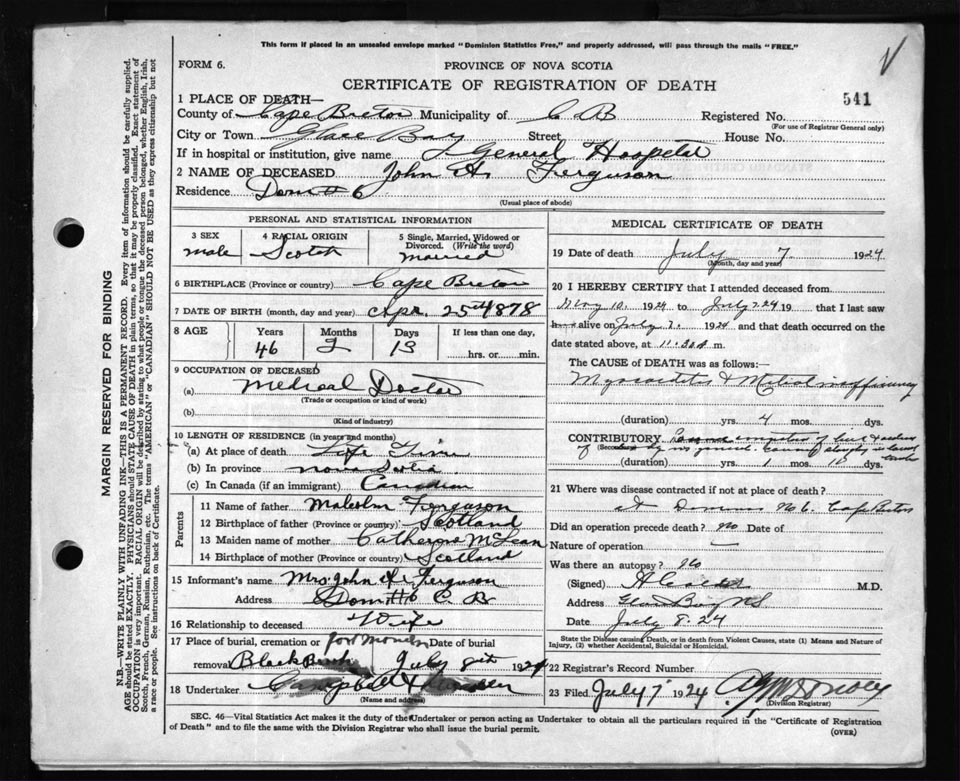 This form if placed in an unsealed envelope marked "Dominion Statistics Free," and properly addressed, will pass through the mails "FREE."
FORM 6.
PROVINCE OF NOVA SCOTIA
CERTIFICATE OF REGISTRATION OF DEATH
541
1 PLACE OF DEATH—
County of Cape Breton Municipality of C B Registered No.
(For use of Registrar General only)
City or Town Glace Bay Street House No.
If in hospital or institution, give name General Hospital
2 NAME OF DECEASED John A. Ferguson
Residence Dom # 6
(Usual place of abode)
PERSONAL AND STATISTICAL INFORMATION
3 SEX male
4 RACIAL ORIGIN Scotch
5 Single, Married, Widowed or Divorced. (Write the word) married
6 BIRTHPLACE (Province or country) Cape Breton
7 DATE OF BIRTH (month, day and year) Apr. 25th 1878
8 AGE Years 46 Months 2 Days 13 If less than one day, hrs. or min.
9 OCCUPATION OF DECEASED
(a) Medical Doctor
(Trade or occupation or kind of work)
(b)
(Kind of industry)
10 LENGTH OF RESIDENCE (in years and months)
(a) At place of death Life Time
(b) In province Nova Scotia
(c) In Canada (if an immigrant) Canadian
Parents
11 Name of father Malcolm Ferguson
12 Birthplace of father (Province or country) Scotland
13 Maiden name of mother Catherine McLean
14 Birthplace of mother (Province or country) Scotland
15 Informant's name Mrs. John A. Ferguson
Address Dom # 6 C. B
16 Relationship to deceased Wife
17 Place of burial, cremation or removal Port Morien Black Brook Date of burial July 8th 1924
18 Undertaker Campbell &
(Name and address)
MEDICAL CERTIFICATE OF DEATH
19 Date of death July 7 1924
(Month, day and year)
20 I HEREBY CERTIFY that I attended deceased from
May 10. 1924 to July 7 24 19 that I last saw
h alive on July 7. 1924 and that death occurred on
date stated above, at 11.30 m.
The CAUSE of DEATH was as follows:
Myocarditis & Mitral insufficiency
(duration) yrs. 4 mos. dys.
CONTRIBUTORY
(Secondary)
(duration) yrs. 1 mos. dys.
21 Where was disease contracted if not at place of death?
at Dominion No 6. Cape Breton
Did an operation precede death? No Date of
Nature of operation —
Was there an autopsy? No
(Signed) M.D.
Address Glace Bay NS
Date July 8. 24
State the Disease causing Death, or in death from Violent Causes, state (1) Means and Nature of Injury, (2) whether Accidental, Suicidal or Homicidal.
22 Registrar's Record Number
23 Filed July 7 1924
(Division Registrar)
SEC. 46—Vital Statistics Act makes it the duty of the Undertaker or person acting as Undertaker to obtain all the particulars required in the "Certificate of Registration of Death" and to file the same with the Division Registrar who shall issue the burial permit.
(OVER)
MARGIN RESERVED FOR BINDING
N.B.—WRITE PLAINLY WITH UNFADING INK—THIS IS A PERMANENT RECORD. Every item of information should be carefully supplied.
AGE should be stated EXACTLY. PHYSICIANS should STATE CAUSE OF DEATH in plain terms, so that it may be properly classified. Exact statement of
OCCUPATION is very important. RACIAL ORIGIN will be described by stating to what people or tongue the deceased person belonged, whether English, Irish,
Scotch, French, German, Russian, Ruthenian, etc. The terms "AMERICAN" or "CANADIAN" SHOULD NOT BE USED as they express citizenship but not
a race or people. See instructions on back of Certificate.